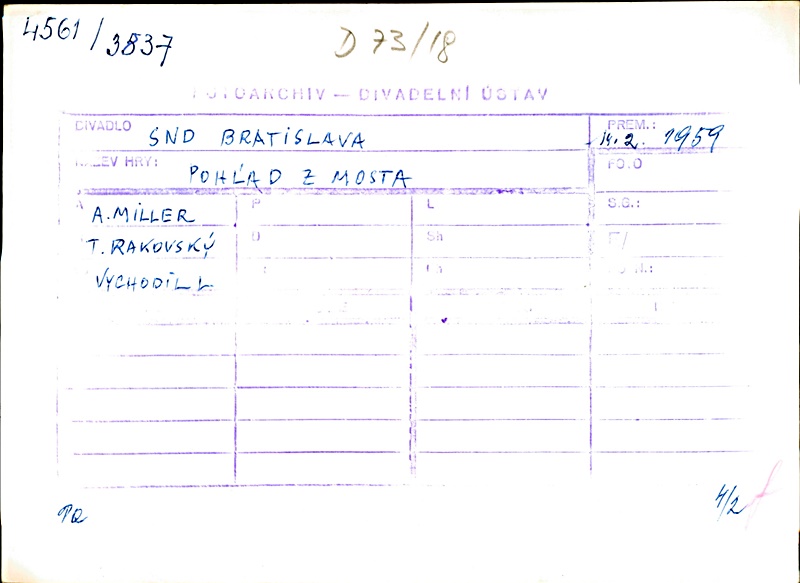 4561/3837
D 73/18
FOTOARCHIV — DIVADELNÍ ÚSTAV
DIVADLO SND BRATISLAVA
PREM.: 14.2. 1959
NÁZEV HRY: POHĽAD Z MOSTA
FOTO
A A. MILLER P L S.G.:
T. RAKOVSKÝ D Sh
VYCHODIL L.
4/2